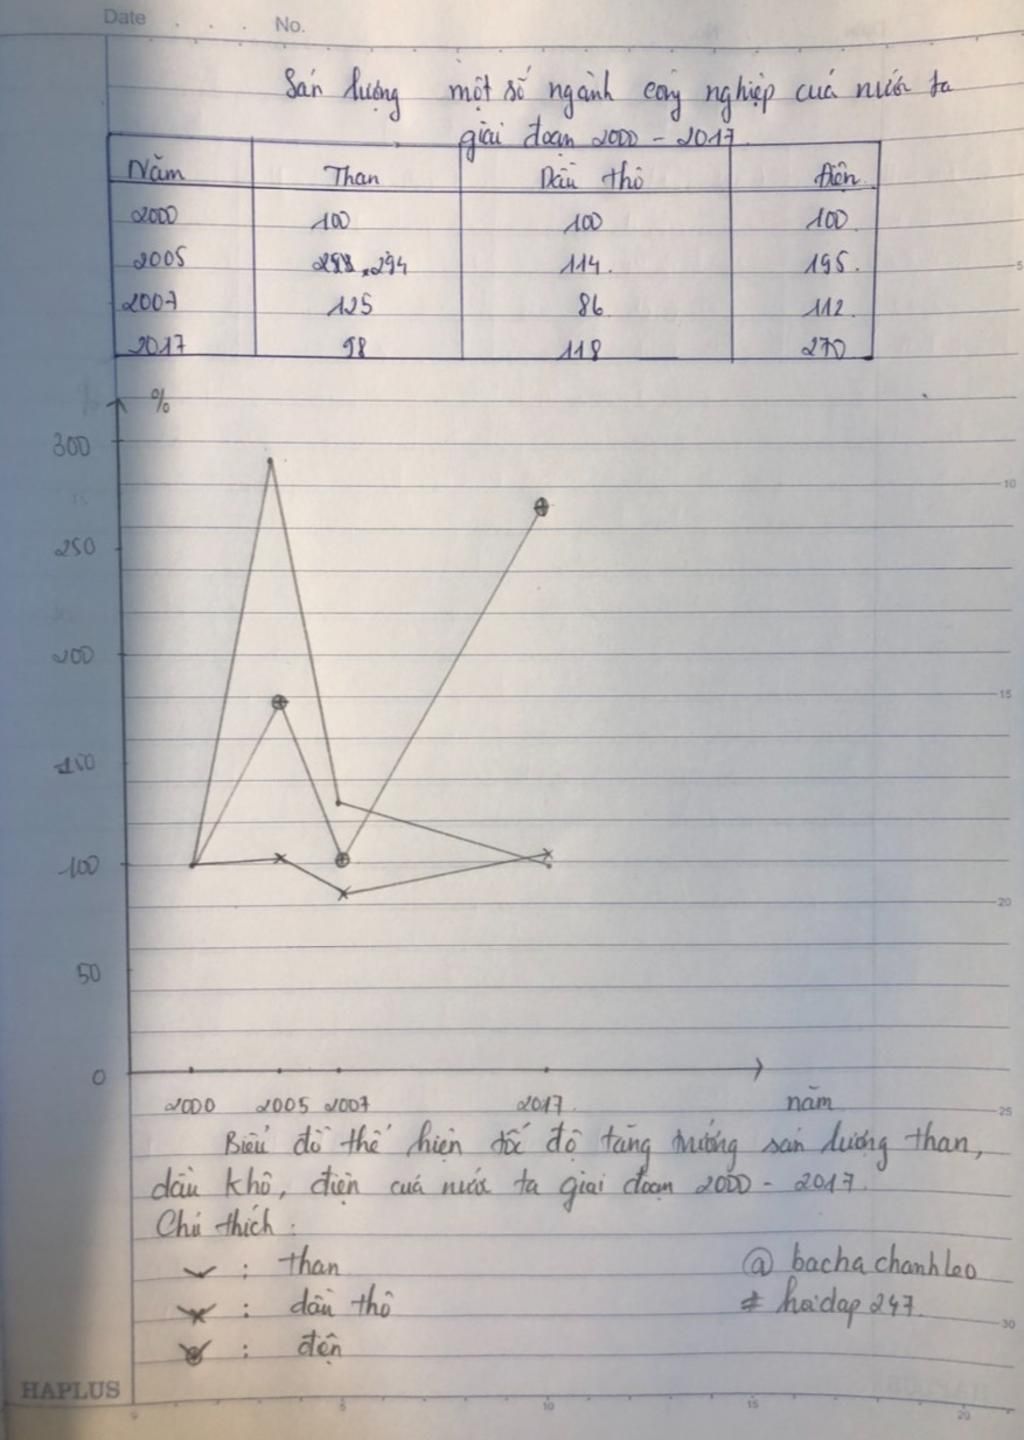 Date . . . No.
Sản lượng một số ngành công nghiệp của nước ta
giai đoạn 2000 - 2017
Năm Than Dầu thô Điện
2000 100 100 100
2005 294 114 195
2007 125 86 112
2017 98 118 270
%
300
250
200
150
100
50
0
2000 2005 2007 2017 năm
Biểu đồ thể hiện tốc độ tăng trưởng sản lượng than,
dầu khô, điện của nước ta giai đoạn 2000 - 2017
Chú thích :
: than
: dầu thô
: đện
@ bachachanhleo
# hoidap247
5
10
15
20
25
30
HAPLUS
0 5 10 15 20